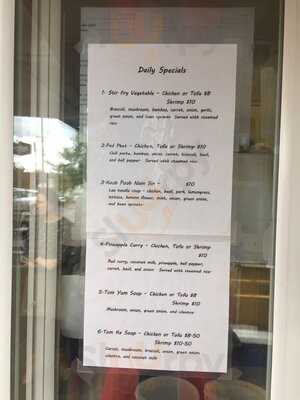 Daily Specials
1- Stir Fry Vegetable - Chicken or Tofu $8
Shrimp $10
Broccoli, mushroom, bamboo, carrot, onion, garlic,
green onion, and bean sprouts. Served with steamed
rice
2-Pad Phet - Chicken, Tofu or Shrimp $10
Chili paste, bamboo, onion, carrot, broccoli, basil,
and bell pepper. Served with steamed rice
3- Nam Sin - $10
Lao noodle soup - chicken, beef, pork, lemongrass,
banana flower, mint, onion, green onion,
and bean sprouts
4-Pineapple Curry - Chicken, Tofu or Shrimp
$10
Red curry, coconut milk, pineapple, bell pepper,
carrot, basil, and onion. Served with steamed rice
5-Tom Yum Soup - Chicken or Tofu $8
Shrimp $10
Mushroom, onion, green onion, and cilantro
6-Tom Ka Soup - Chicken or Tofu $8.50
Shrimp $10.50
Carrot, mushroom, broccoli, onion, green onion,
cilantro, and coconut milk